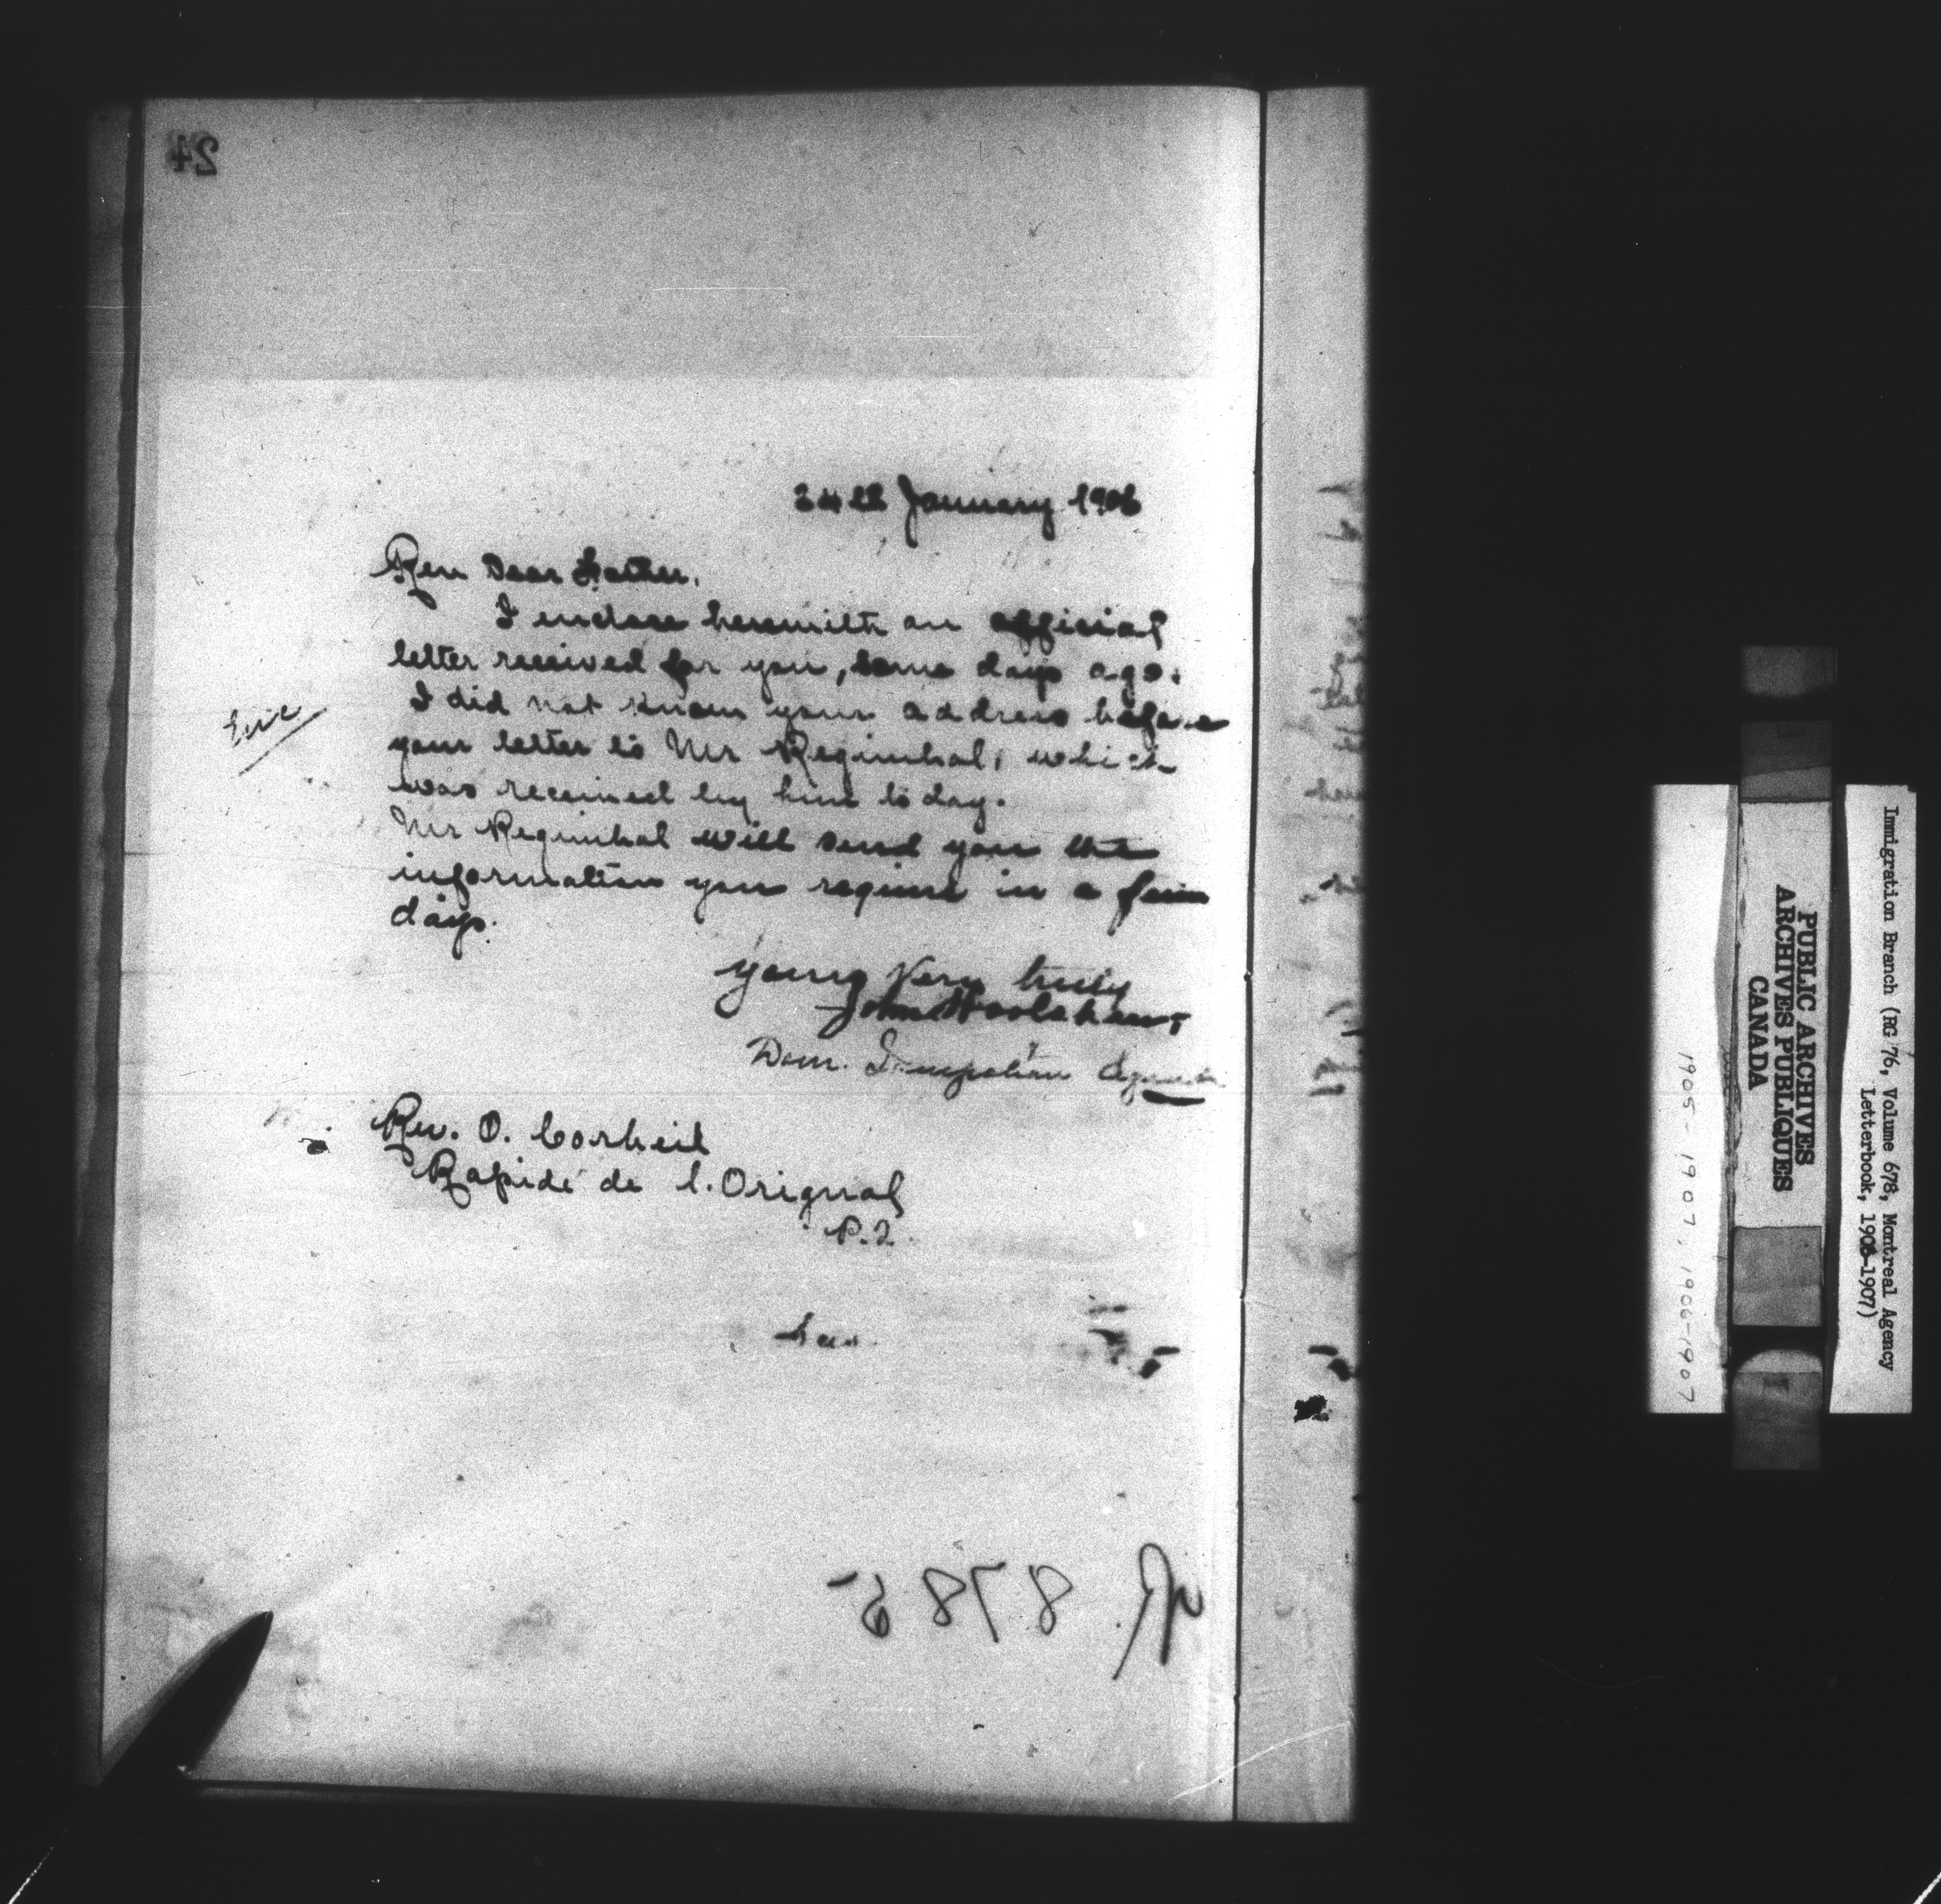 24
24th January 1906
Rev Dear Father.
I enclose herewith an official
letter received for you, some days ago.
I did not know your address before
your letter to Mr Regimbal, which
was received by him to day.
Mr Regimbal will send you the
information you require in a few
days.
Yours Very truly
John Hoolahan
Dom. Immigration Agent
Rev. O. Corbeil
Rapide de l'Orignal
P.Q.
R. 8786
PUBLIC ARCHIVES
ARCHIVES PUBLIQUES
CANADA
Immigration Branch (RG 76, Volume 678, Montreal Agency
Letterbook, 1906-1907)
1905-1907, 1906-1907